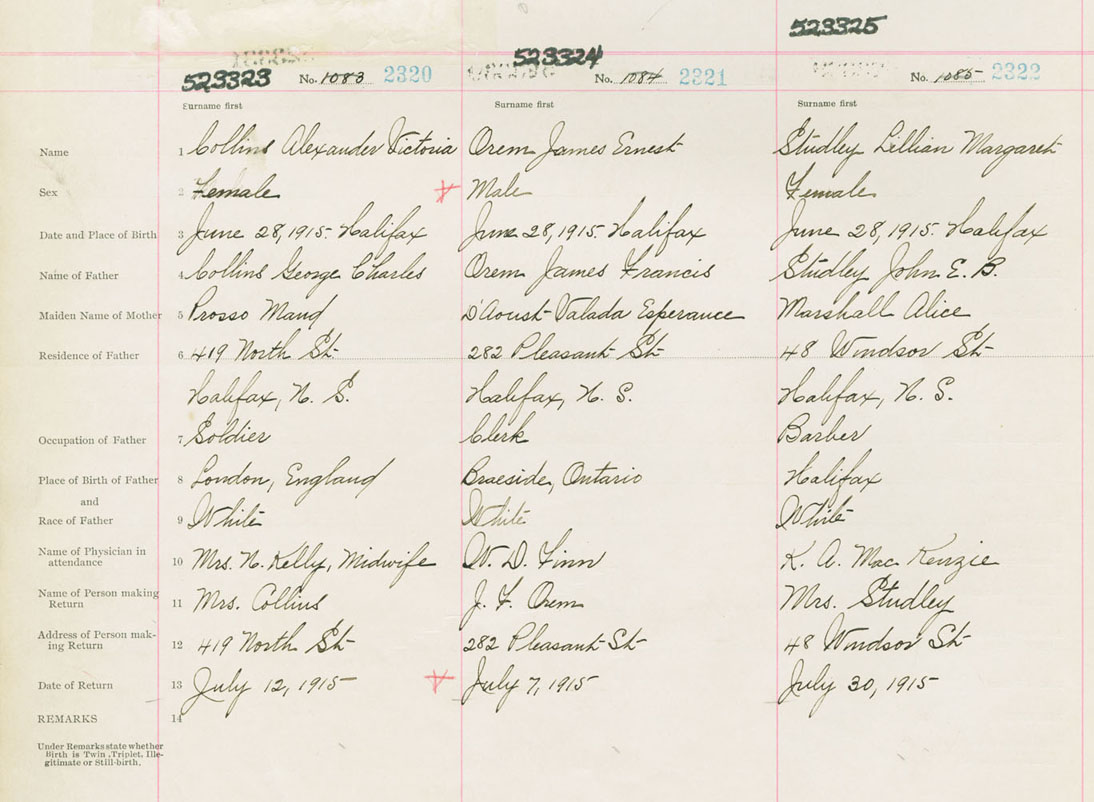 523325
523323 No. 1083 2320 523324 No. 1084 2321 No. 1085 2322
Surname first Surname first Surname first
Name 1 Collins Alexander Victoria Orem James Ernest Studley Lillian Margaret
Sex 2 Female Male Female
Date and Place of Birth 3 June 28, 1915. Halifax June 28, 1915. Halifax June 28, 1915. Halifax
Name of Father 4 Collins George Charles Orem James Francis Studley John E. B.
Maiden Name of Mother 5 Prosso Maud D'Aoust Valada Esperance Marshall Alice
Residence of Father 6 419 North St 282 Pleasant St 48 Windsor St
Halifax, N. S. Halifax, N. S. Halifax, N. S.
Occupation of Father 7 Soldier Clerk Barber
Place of Birth of Father 8 London, England Braeside, Ontario Halifax
and
Race of Father 9 White White White
Name of Physician in
attendance 10 Mrs. N. Kelly, Midwife W. D. Finn K. A. Mac Kenzie
Name of Person making
Return 11 Mrs. Collins J. F. Orem Mrs. Studley
Address of Person mak-
ing Return 12 419 North St 282 Pleasant St 48 Windsor St
Date of Return 13 July 12, 1915 July 7, 1915 July 30, 1915
REMARKS 14
Under Remarks state whether
Birth is Twin, Triplet, Ille-
gitimate or Still-birth.